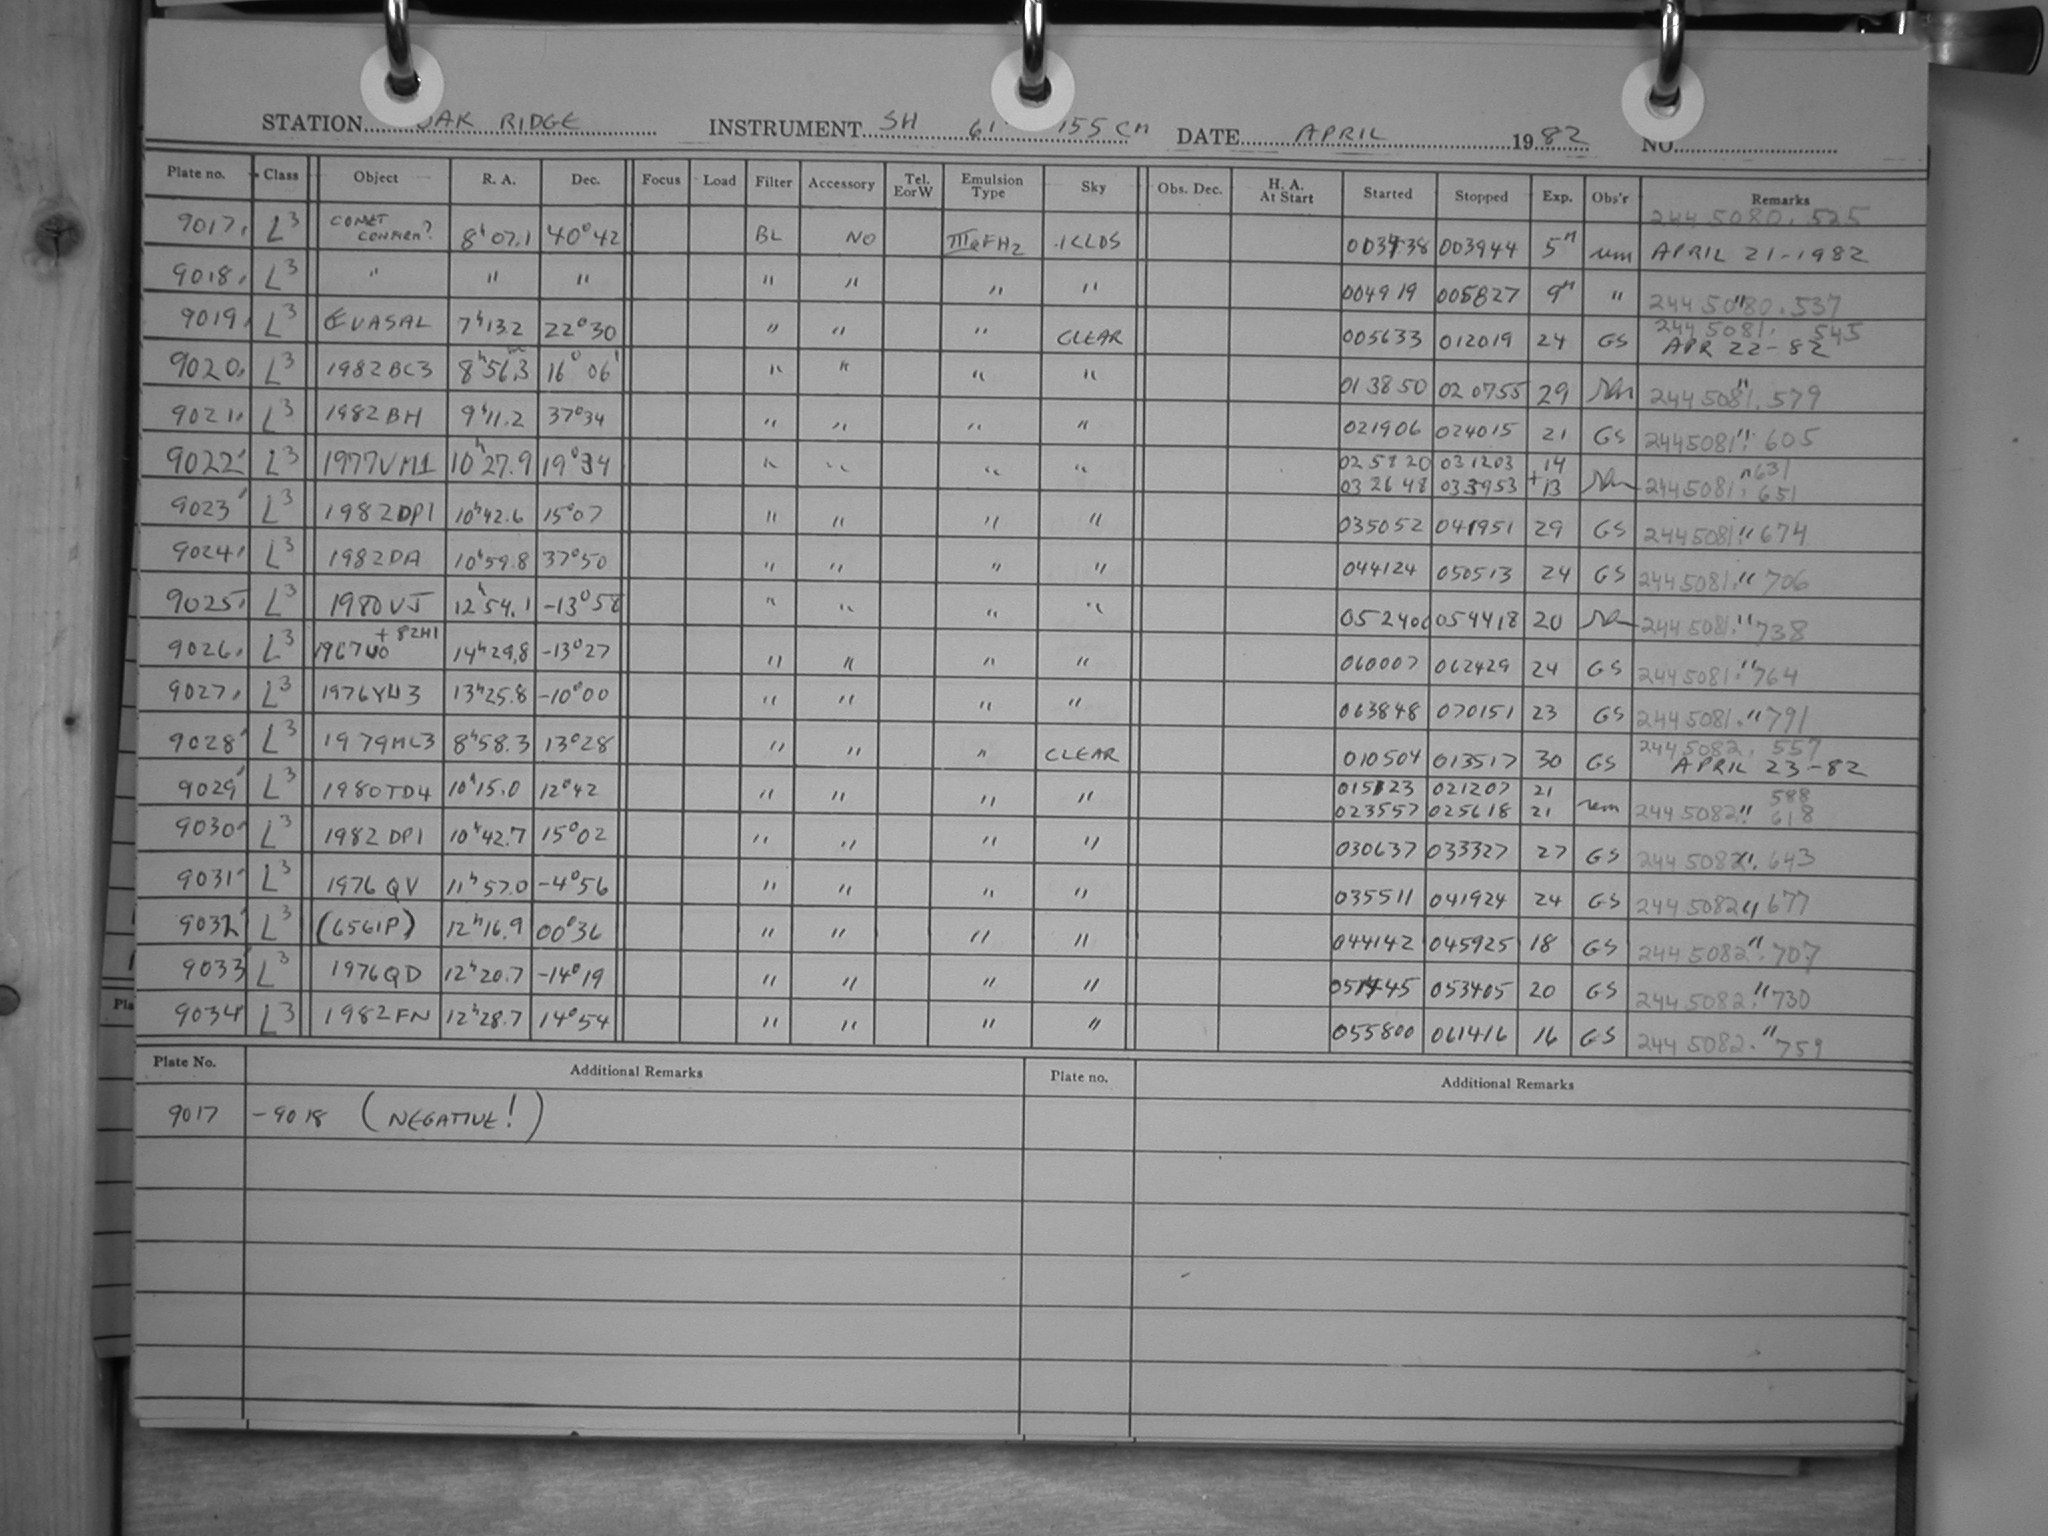 STATION OAK RIDGE INSTRUMENT SH 61 155 CM DATE APRIL 1982 NO.
Plate no. Class Object R. A. Dec. Focus Load Filter Accessory Tel. E or W Emulsion Type Sky Obs. Dec. H. A. At Start Started Stopped Exp. Obs'r Remarks
2445080.525
9017 L3 COMET CONFIRM? 8h07.1 40°42 BL NO IIIaFH2 .1CLDS 003438 003944 5m rem APRIL 21-1982
9018 L3 " " " " " " " 004919 005827 9m " " 2445080.537
9019 L3 VASAL 7h13.2 22°30 " " " CLEAR 005633 012019 24 GS 2445081.545 APR 22-82
9020 L3 1982BC3 8h56.3m 16°06' " " " " 013850 020755 29 " 2445081.579
9021 L3 1982BH 9h11.2 37°34 " " " " 021906 024015 21 GS " 2445081.605
9022 L3 1977VM1 10h27.9 19°34 " " " " 025920 031203 14 " 631
032648 033953 +13 2445081.651
9023 L3 1982DP1 10h42.6 15°07 " " " " 035052 041951 29 GS 2445081." 674
9024 L3 1982DA 10h59.8 37°50 " " " " 044124 050513 24 GS 2445081." 706
9025 L3 1980VJ 12h54.1 -13°58 " " " " 052400 054418 20 2445081." 738
9026 L3 1967UO + 82HI 14h29.8 -13°27 " " " " 060007 062429 24 GS 2445081." 764
9027 L3 1976YW3 13h25.8 -10°00 " " " " 063848 070151 23 GS 2445081." 791
9028 L3 1979MC3 8h58.3 13°28 " " " CLEAR 010504 013517 30 GS 2445082.557 APRIL 23-82
9029 L3 1980TD4 10h15.0 12°42 " " " " 015123 021207 21 rem 588
023557 025618 21 2445082." 618
9030 L3 1982 DP1 10h42.7 15°02 " " " " 030637 033327 27 GS 2445082." 643
9031 L3 1976 QV 11h57.0 -4°56 " " " " 035511 041924 24 GS 2445082." 677
9032 L3 (6561P) 12h16.9 00°36 " " " " 044142 045925 18 GS 2445082." 707
9033 L3 1976QD 12h20.7 -14°19 " " " " 051445 053405 20 GS 2445082." 730
9034 L3 1982FN 12h28.7 14°54 " " " " 055800 061416 16 GS 2445082." 759
Plate No. Additional Remarks Plate no. Additional Remarks
9017 - 9018 (NEGATIVE!)